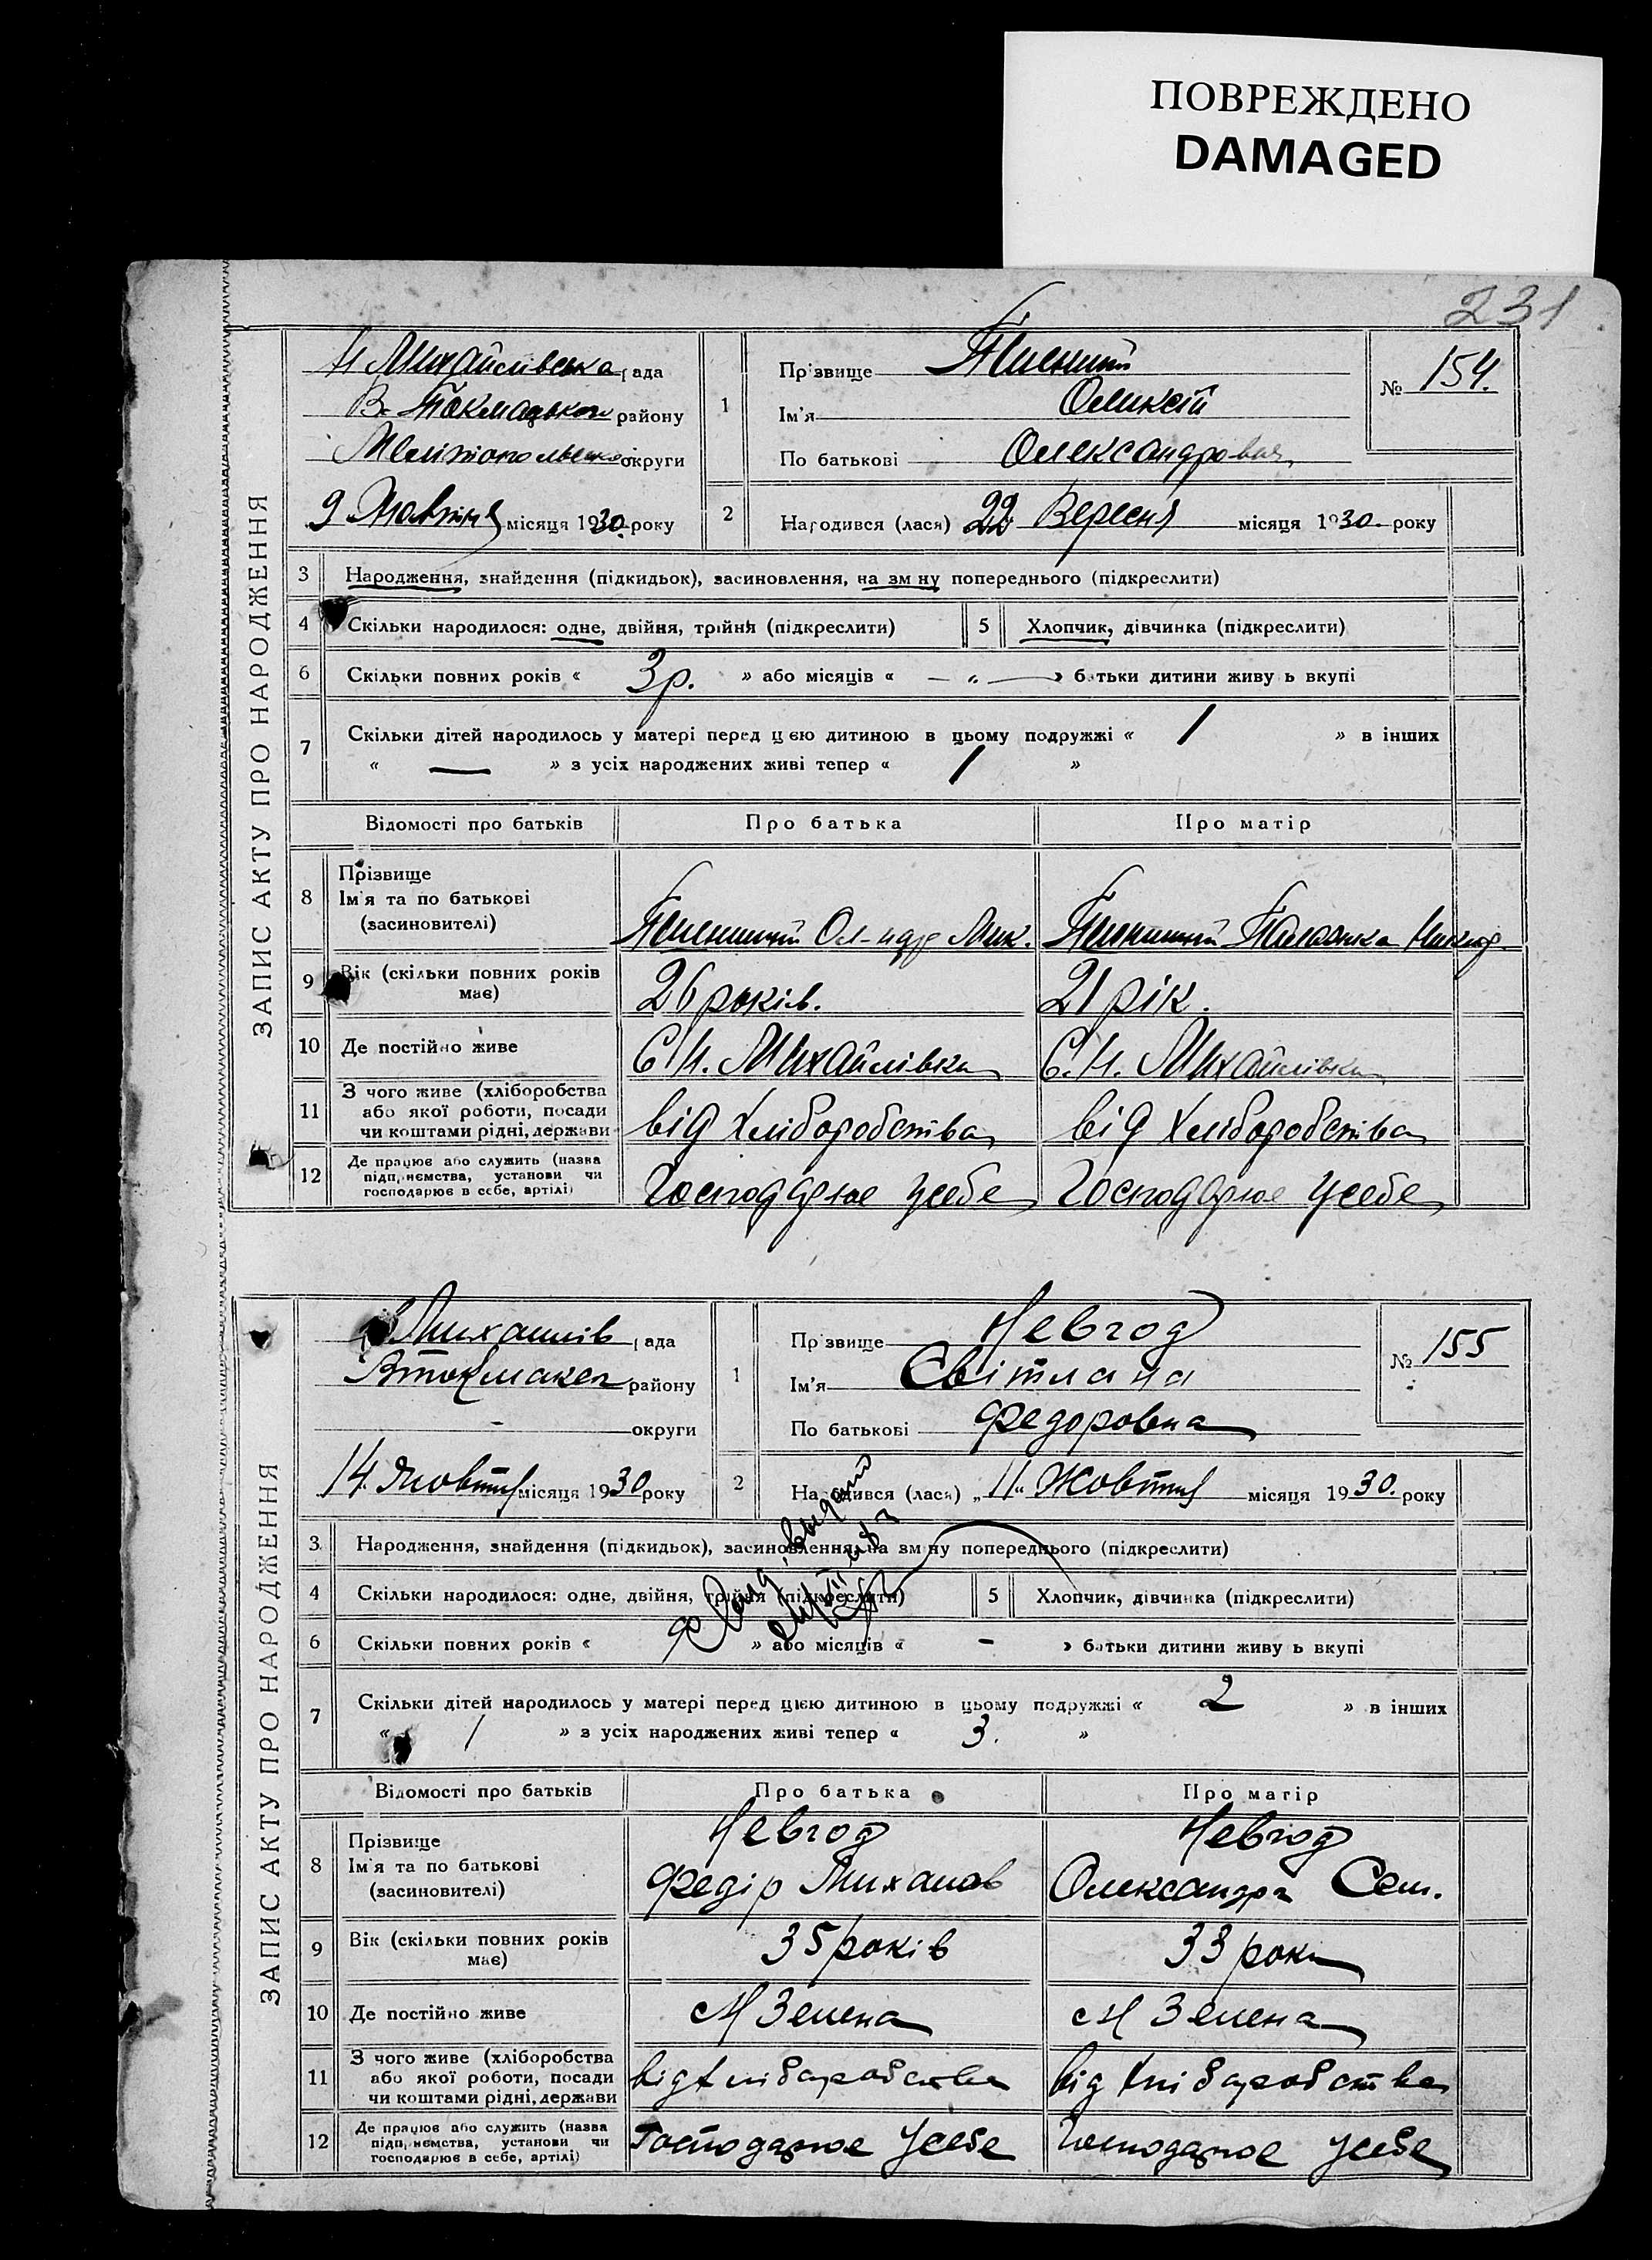 ПОВРЕЖДЕНО
DAMAGED
231
ЗАПИС АКТУ ПРО НАРОДЖЕННЯ
Н Михайлівська рада
В. Токмацького району
Мелітопольсько округи
9 Жовтня місяця 1930. року
1
Прізвище
Ім'я Оликсій
По батькові Олександрович
№ 154.
2
Народився (лася) 22 Вересня місяця 1930. року
3 Народження, знайдення (підкидьок), засиновлення, на зм ну попереднього (підкреслити)
4 Скільки народилося: одне, двійня, трійня (підкреслити) 5 Хлопчик, дівчинка (підкреслити)
6 Скільки повних років « 3р. » або місяців « — „ — » батьки дитини живу ь вкупі
7 Скільки дітей народилось у матері перед цією дитиною в цьому подружжі « 1 » в інших
« — » з усіх народжених живі тепер « 1 »
Відомості про батьків Про батька Про матір
8 Прізвище
Ім'я та по батькові
(засиновителі)
Ол-ндр Мик.
9 Вік (скільки повних років має) 26 років. 21 рік.
10 Де постійно живе С. Н. Михайлівка С. Н. Михайлівка
11 З чого живе (хліборобства
або якої роботи, посади
чи коштами рідні, держави
від Хліборобства від Хліборобства
12 Де працює або служить (назва
підприємства, установи чи
господарює в себе, артілі)
Господарює усебе Господарює усебе
ЗАПИС АКТУ ПРО НАРОДЖЕННЯ
Михайлів рада
Втокмакск району
- округи
14. Жовтня місяця 1930 року
1
Прізвище Невгод
Ім'я Світлана
По батькові Федоровна
№ 155
2
Народився (лася) „11„ Жовтня місяця 1930. року
3 Народження, знайдення (підкидьок), засиновлення, на зм ну попереднього (підкреслити)
4 Скільки народилося: одне, двійня, трійня (підкреслити) 5 Хлопчик, дівчинка (підкреслити)
6 Скільки повних років « » або місяців « - » батьки дитини живу ь вкупі
7 Скільки дітей народилось у матері перед цією дитиною в цьому подружжі « 2 » в інших
« 1 » з усіх народжених живі тепер « 3. »
Відомості про батьків Про батька Про матір
8 Прізвище
Ім'я та по батькові
(засиновителі)
Невгод Невгод
Федір Михайлов Олександра Сем.
9 Вік (скільки повних років має) 35 років 33 роки
10 Де постійно живе с Н Зелена с Н Зелена
11 З чого живе (хліборобства
або якої роботи, посади
чи коштами рідні, держави
від хліборобства від хліборобства
12 Де працює або служить (назва
підприємства, установи чи
господарює в себе, артілі)
Господарює Усебе Господарює Усебе